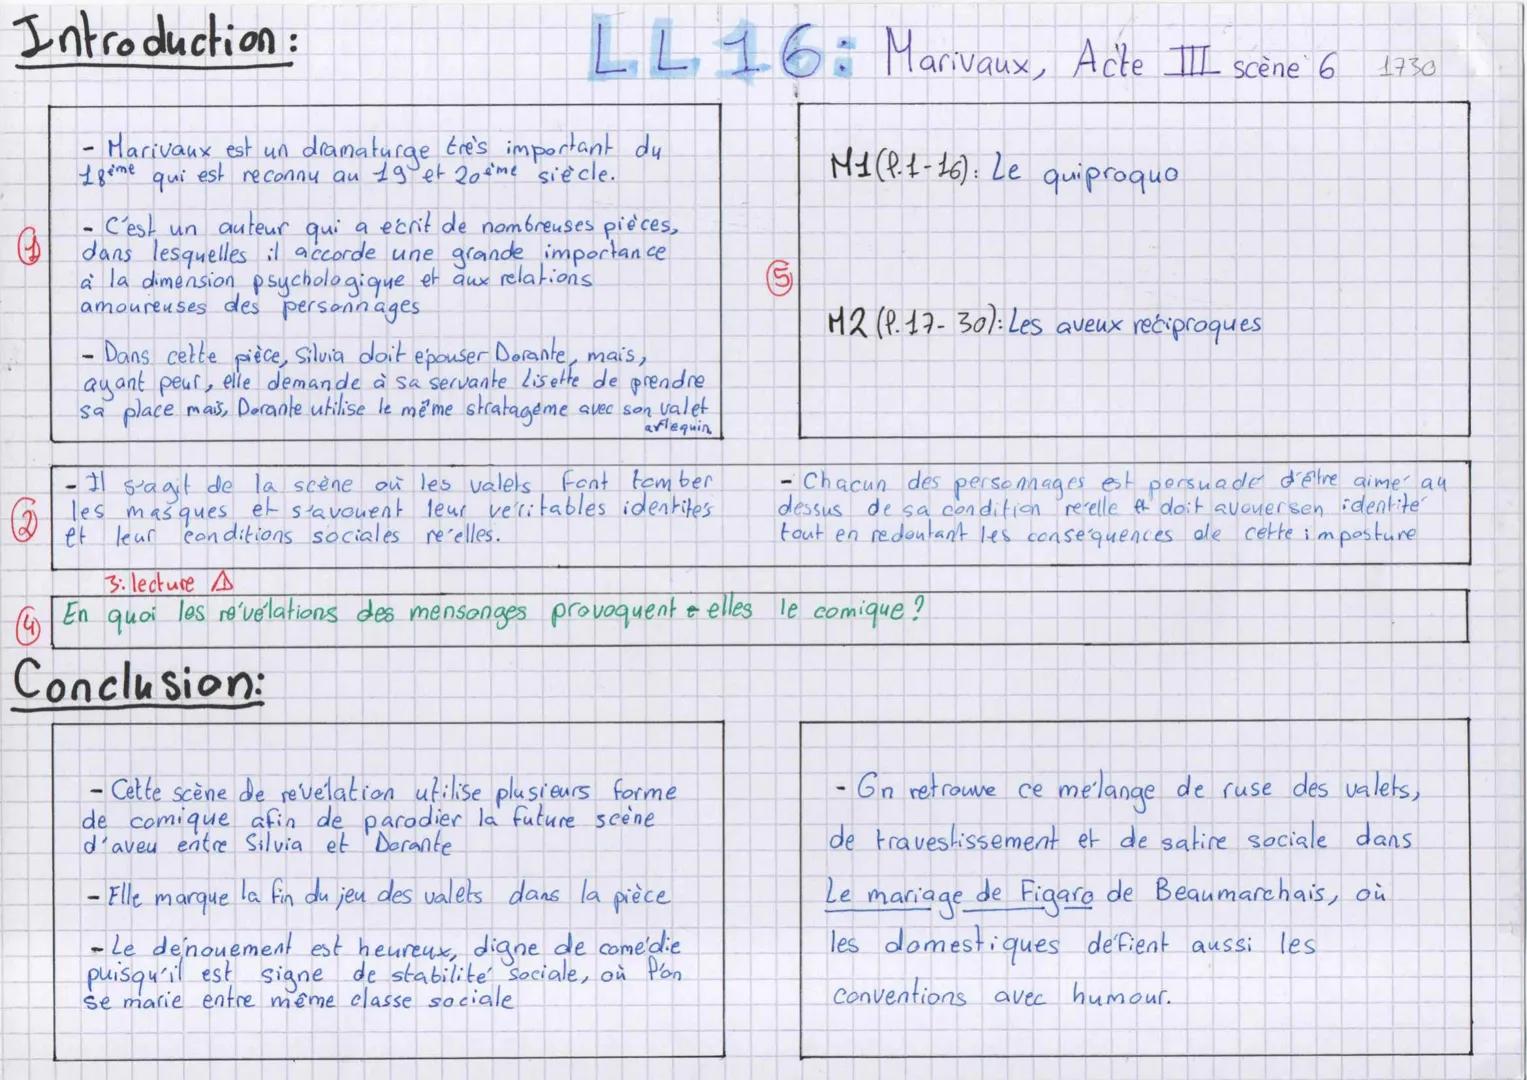 Introduction:
LL 16: Marivaux, Acte III scène 6 1730
①
- Marivaux est un dramaturge très important du
18ème qui est reconnu au 19 et 20ème siècle.
- C'est un auteur qui a écrit de nombreuses pièces,
dans lesquelles il accorde une grande importance
à la dimension psychologique et aux relations
amoureuses des personnages
- Dans cette pièce, Silvia doit épouser Dorante, mais,
ayant peur, elle demande à sa servante Lisette de prendre
sa place mais, Dorante utilise le même stratagème avec son valet
arlequin
⑤
M1 (l.1-16): Le quiproquo
M2 (l.17-30): Les aveux réciproques
②
- Il s'agit de la scène où les valets font tomber
les masques et s'avouent leur véritables identités
et leur conditions sociales réelles.
- Chacun des personnages est persuadé d'être aimer au
dessus de sa condition réelle et doit avouer sen identité
tout en redoutant les conséquences de cette imposture
3: lecture ⚠
④
En quoi les révélations des mensonges provoquent-elles le comique?
Conclusion:
- Cette scène de révélation utilise plusieurs forme
de comique afin de parodier la future scène
d'aveu entre Silvia et Dorante
- Elle marque la fin du jeu des valets dans la pièce
- Le dénouement est heureux, digne de comédie
puisqu'il est signe de stabilité sociale, où l'on
se marie entre même classe sociale
- On retrouve ce mélange de ruse des valets,
de travestissement et de satire sociale dans
Le mariage de Figaro de Beaumarchais, où
les domestiques défient aussi les
conventions avec humour.